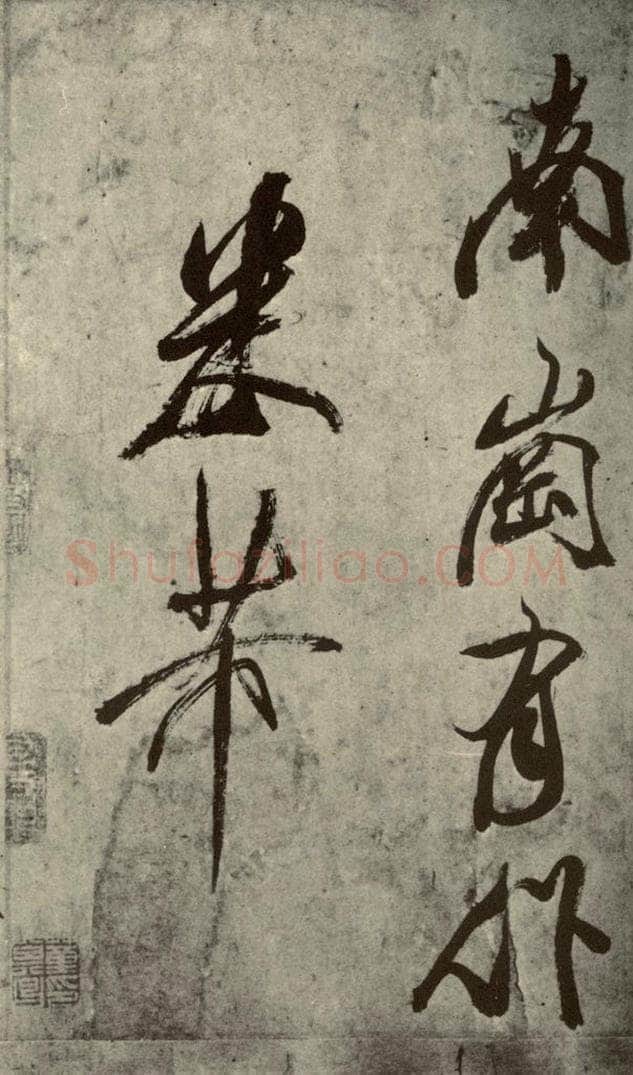 南崗有
米芾
Shufaziliao.COM